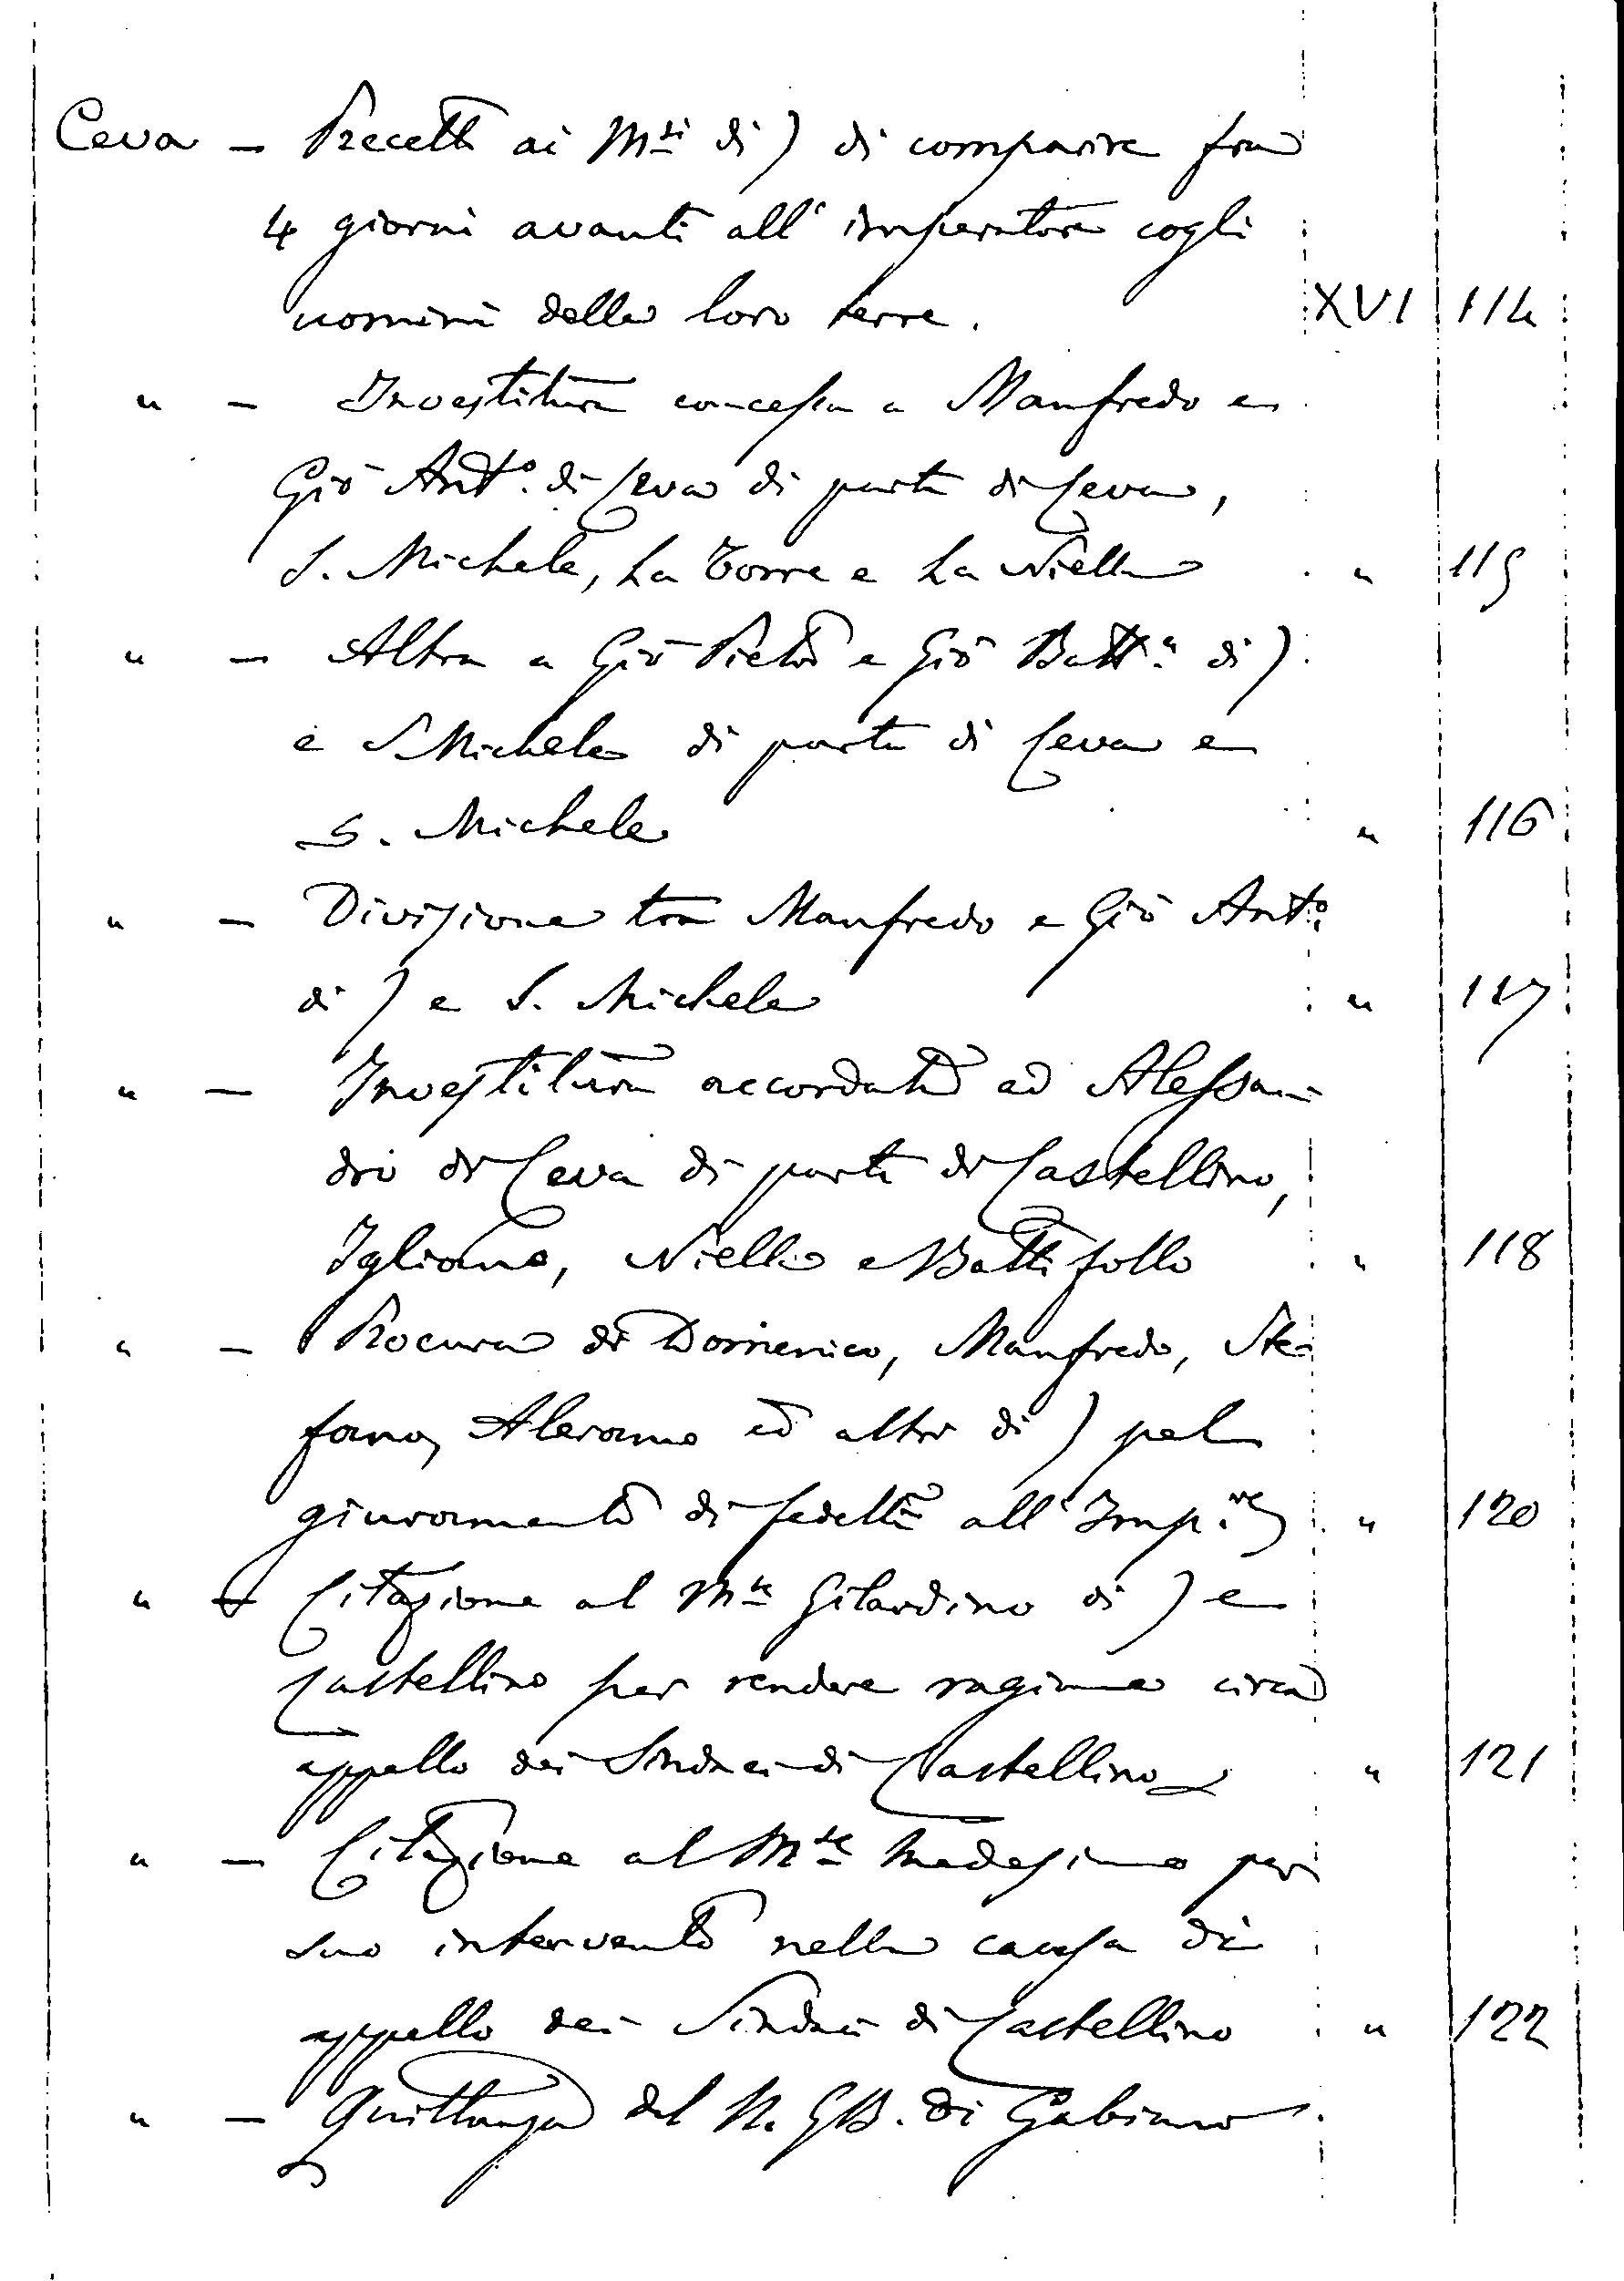 Ceva — Precetti ai M.ti di ) di comparire fra
4 giorni avanti all' imperatore cogli
uomini delle loro terre. XVI 114
" — Investitura concessa a Manfredo e
Giō Ant.o di Ceva di parte di Ceva,
S. Michele, La Torre e La Niella " 115
" — Altra a Giō Pietro e Giō Batt.a di )
e S Michele di parte di Ceva e
S. Michele " 116
" — Divisione tra Manfredo e Giō Ant.o
di ) e S. Michele " 117
" — Investitura accordata ad Alessan-
dro di Ceva di parte di Castellino,
Igliano, Niella e Battifollo " 118
" — Procura di Domenico, Manfredo, Ste-
fano, Aleramo ed altri di ) pel
giuramento di fedeltà all' Imp.re " 120
" — Citazione al M.se Gilardino di ) e
Castellino per rendere ragione circa
appello dei Sindaci di Castellino " 121
" — Citazione al M.se medesimo per
suo intervento nella causa di
appello dei Sindaci di Castellino " 122
" — Quittanza del N. GB. di Gabiano